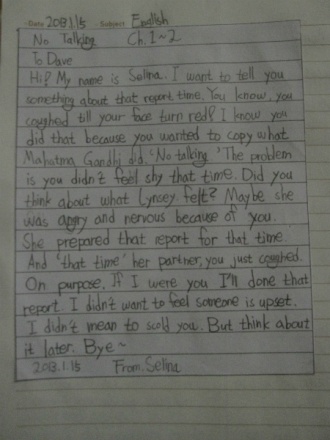 Date 2013.1.15 Subject English
No Talking Ch.1~2
To Dave
Hi? My name is Selina. I want to tell you
something about that report time. You know, you
coughed till your face turn red? I know you
did that because you wanted to copy what
Mahatma Gandhi did. 'No talking' The problem
is you didn't feel shy that time. Did you
think about what Lynsey felt? Maybe she
was angry and nervous because of you.
She prepared that report for that time
And 'that time' her partner, you just coughed.
On purpose. If I were you I'll done that
report. I didn't want to feel someone is upset.
I didn't mean to scold you. But think about
it later. Bye~
2013.1.15 From. Selina